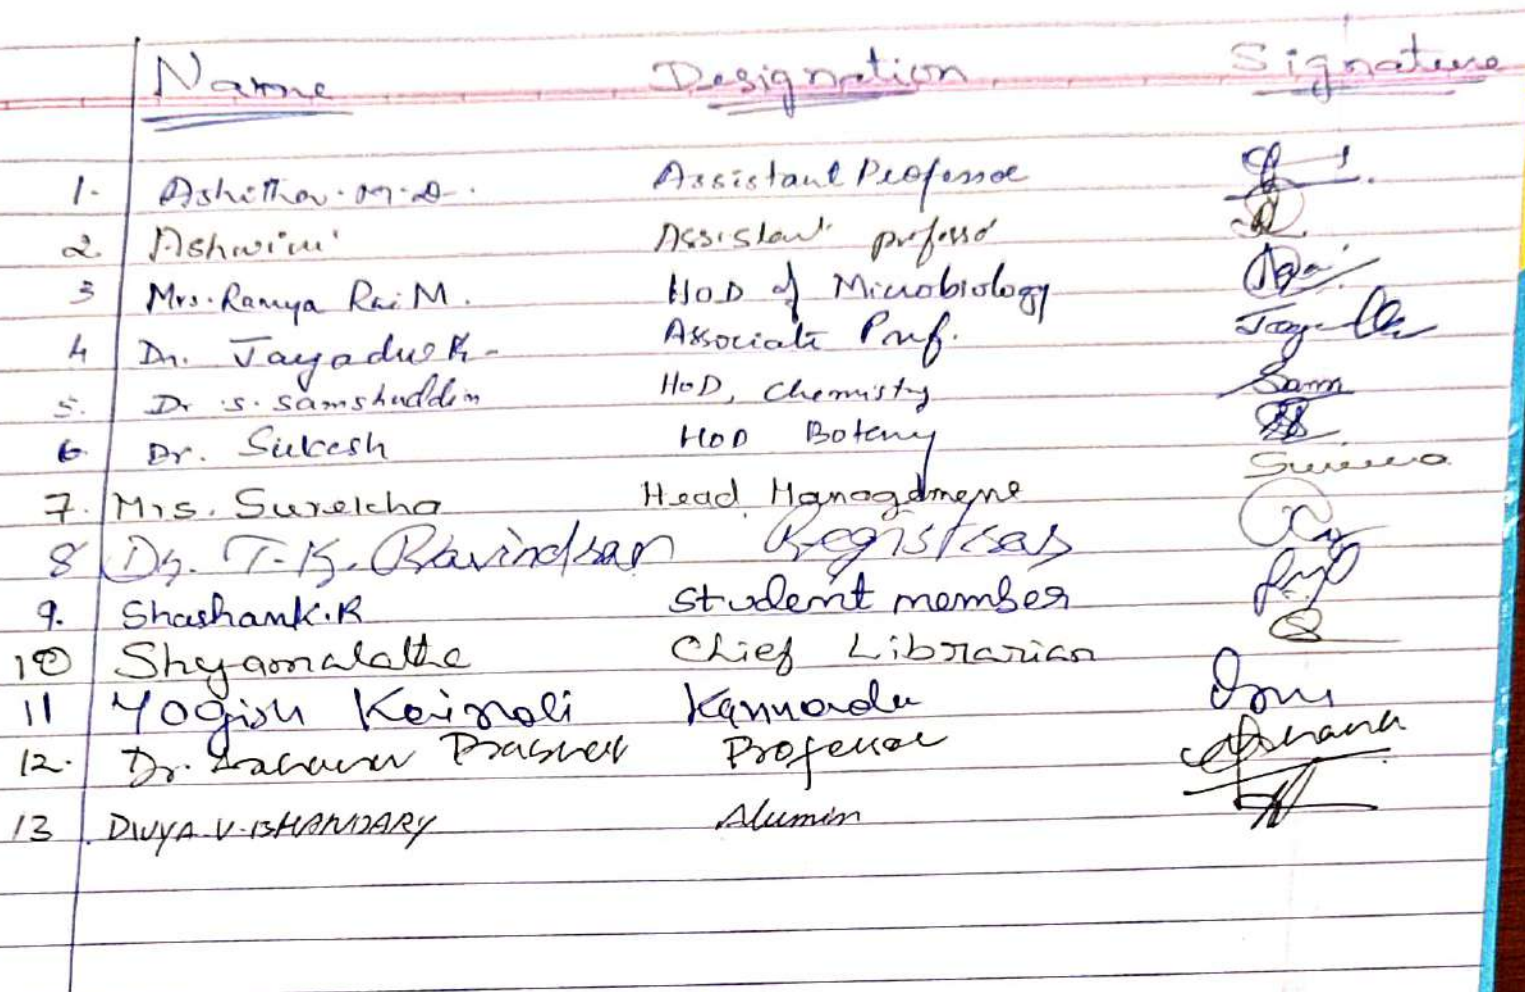 Name Designation Signature
1. Ashitha. M.D. Assistant Professor
2. Ashwini Assistant professo
3 Mrs. Ramya Rai M. HOD of Microbiology
4 Dr. Jayadev K. Associate Prof.
5. Dr S. Samshuddin HOD, Chemistry Sam
6. Dr. Sukesh HOD Botany
7. Mrs. Surekha Head Management
8 Dr. T.K. Ravindran Registrar
9. Shashank.R Student member
10 Shyamalatha Chief Librarian
11 Yogish Kairodi Kannada
12. Dr. Prasner Professor
13 DIVYA.V.BHANDARY Alumin